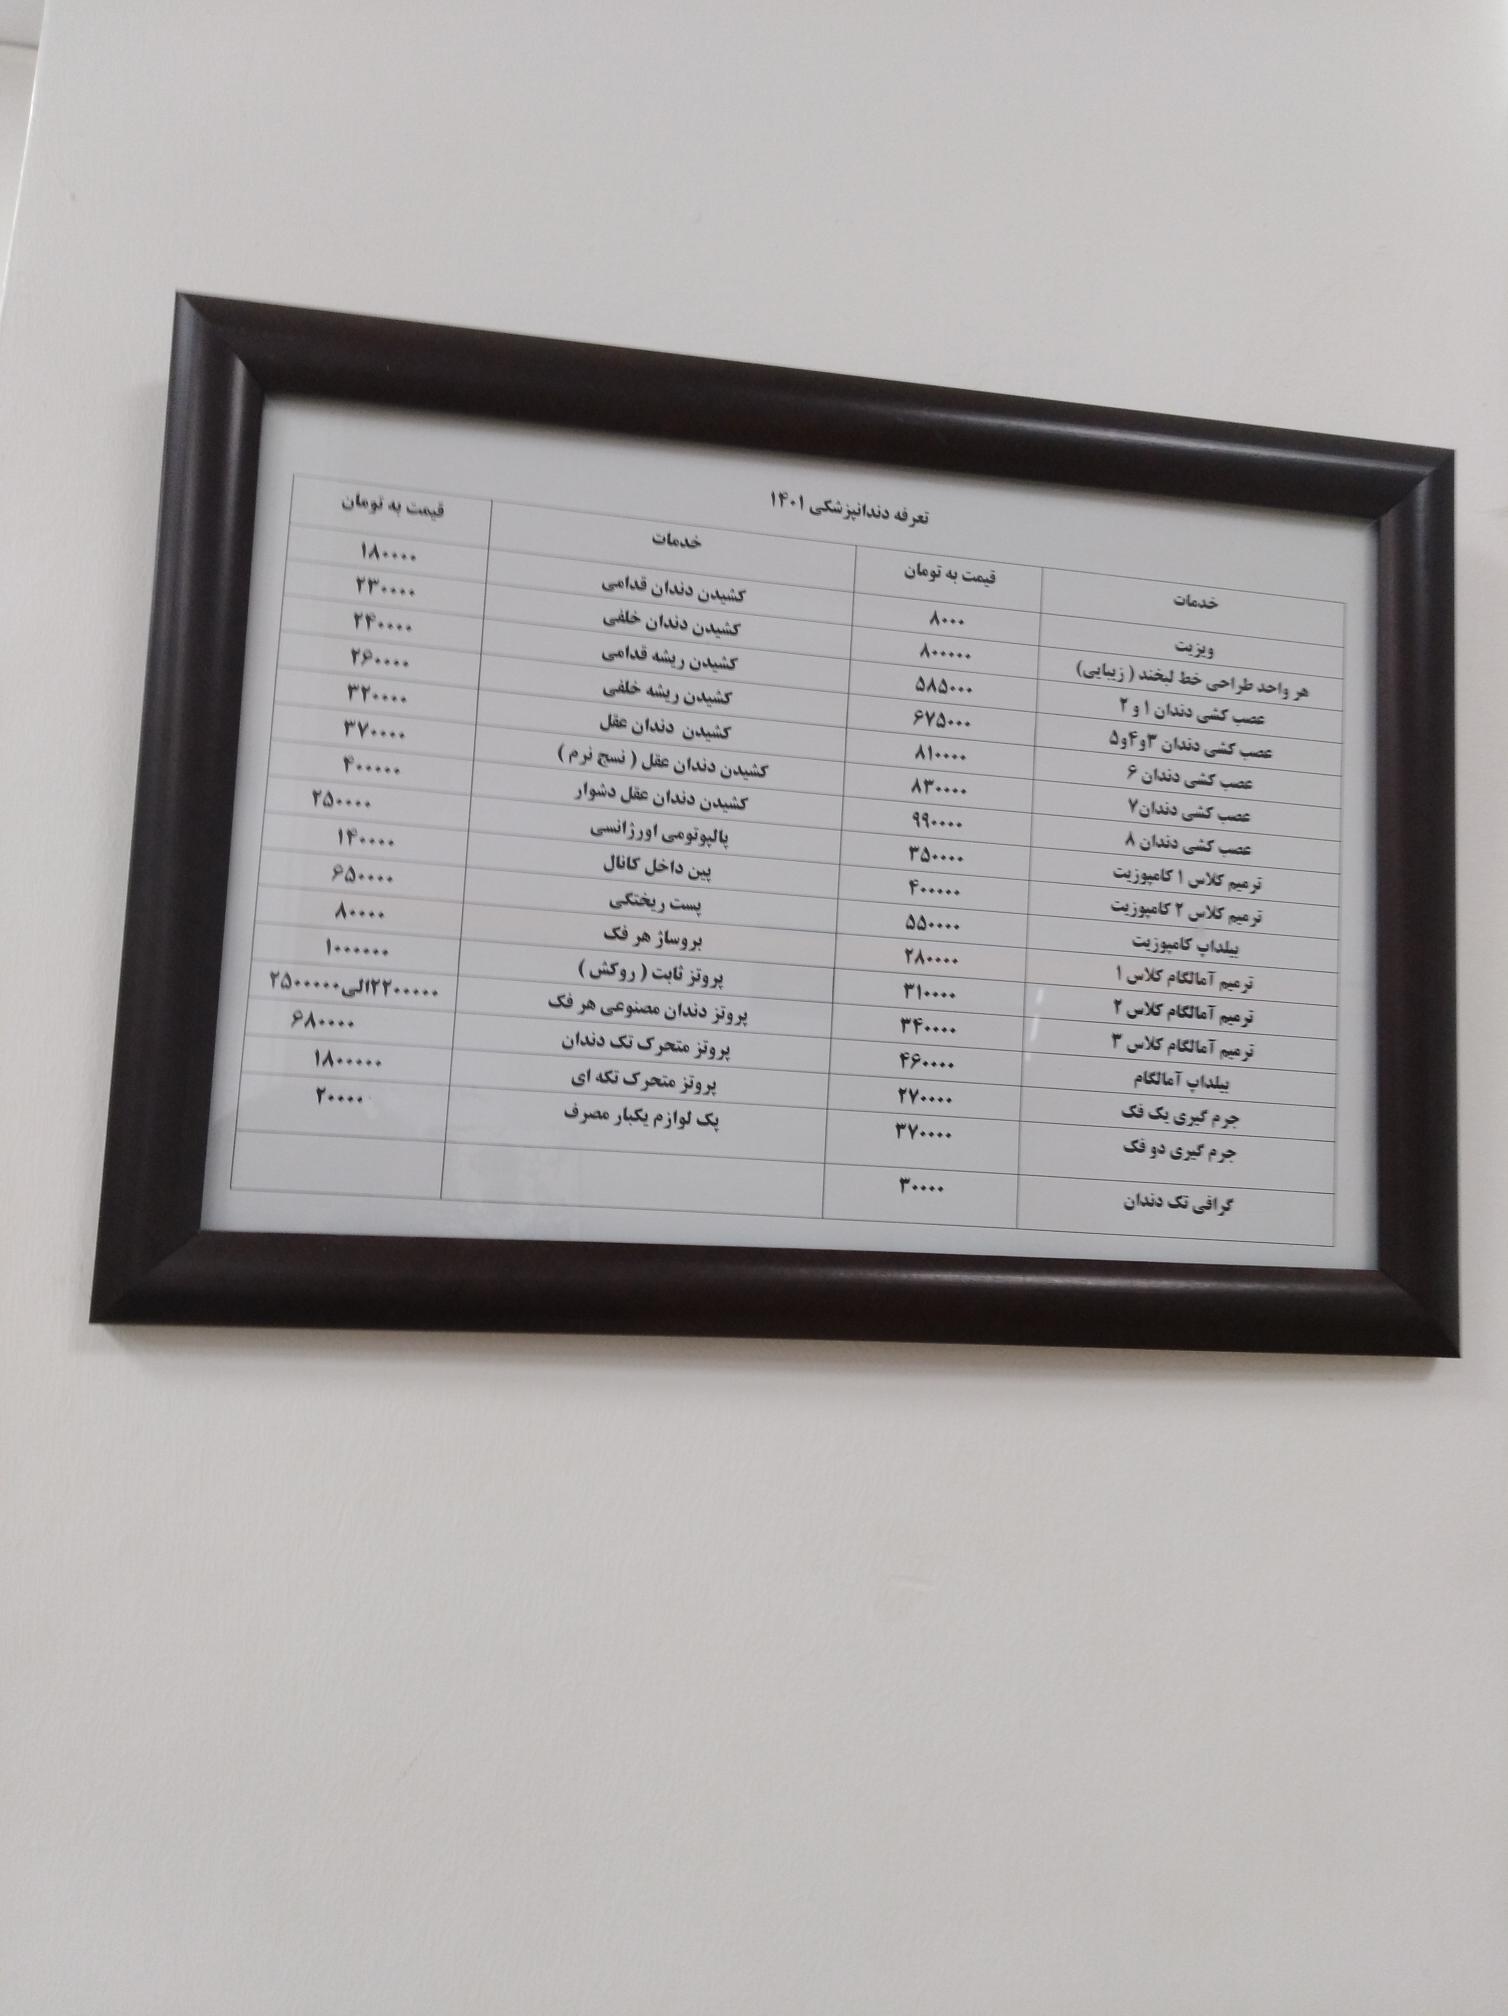 تعرفه دندانپزشکی ۱۴۰۱
خدمات قیمت به تومان خدمات قیمت به تومان
ویزیت ۸۰۰۰ کشیدن دندان قدامی ۱۸۰۰۰۰
هر واحد طراحی خط لبخند ( زیبایی) ۸۰۰۰۰۰ کشیدن دندان خلفی ۲۳۰۰۰۰
عصب کشی دندان ۱ و ۲ ۵۸۵۰۰۰ کشیدن ریشه قدامی ۲۴۰۰۰۰
عصب کشی دندان ۳و۴و۵ ۶۷۵۰۰۰ کشیدن ریشه خلفی ۲۶۰۰۰۰
عصب کشی دندان ۶ ۸۱۰۰۰۰ کشیدن دندان عقل ۳۲۰۰۰۰
عصب کشی دندان۷ ۸۳۰۰۰۰ کشیدن دندان عقل ( نسج نرم ) ۳۷۰۰۰۰
عصب کشی دندان ۸ ۹۹۰۰۰۰ کشیدن دندان عقل دشوار ۴۰۰۰۰۰
ترمیم کلاس ۱ کامپوزیت ۳۵۰۰۰۰ پالپوتومی اورژانسی ۲۵۰۰۰۰
ترمیم کلاس ۲ کامپوزیت ۴۰۰۰۰۰ پین داخل کانال ۱۴۰۰۰۰
بیلداپ کامپوزیت ۵۵۰۰۰۰ پست ریختگی ۶۵۰۰۰۰
ترمیم آمالگام کلاس ۱ ۲۸۰۰۰۰ بروساژ هر فک ۸۰۰۰۰
ترمیم آمالگام کلاس ۲ ۳۱۰۰۰۰ پروتز ثابت ( روکش ) ۱۰۰۰۰۰۰
ترمیم آمالگام کلاس ۳ ۳۴۰۰۰۰ پروتز دندان مصنوعی هر فک ۲۲۰۰۰۰۰الی۲۵۰۰۰۰۰
بیلداپ آمالگام ۴۶۰۰۰۰ پروتز متحرک تک دندان ۶۸۰۰۰۰
جرم گیری یک فک ۲۷۰۰۰۰ پروتز متحرک تکه ای ۱۸۰۰۰۰۰
جرم گیری دو فک ۳۷۰۰۰۰ پک لوازم یکبار مصرف ۲۰۰۰۰
گرافی تک دندان ۳۰۰۰۰